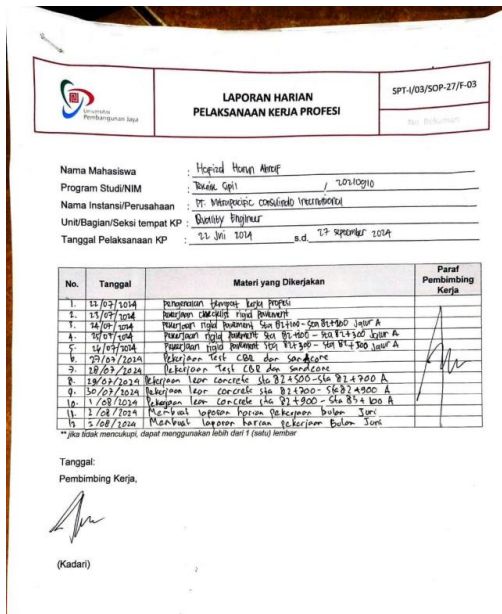 Universitas
Pembangunan Jaya
LAPORAN HARIAN
PELAKSANAAN KERJA PROFESI
SPT-I/03/SOP-27/F-03
No. Dokumen
Nama Mahasiswa :
Program Studi/NIM : Teknik Sipil /
Nama Instansi/Perusahaan : PT. International
Unit/Bagian/Seksi tempat KP : Quality Engineer
Tanggal Pelaksanaan KP : 22 2024 s.d. 27 september 2024
No. Tanggal Materi yang Dikerjakan Paraf Pembimbing Kerja
1. 22/07/2024 Pengenalan tempat kerja profesi
2. 23/07/2024 Pekerjaan checklist rigid pavement
3. 24/07/2024 Pekerjaan rigid pavement Sta 82+100 - Sta 82+200 Jalur A
4. 25/07/2024 Pekerjaan rigid pavement Sta Jalur A
5. 26/07/2024 Pekerjaan rigid pavement Sta Jalur A
6. 27/07/2024 Pekerjaan Test CBR dan sandcore
7. 28/07/2024 Pekerjaan Test CBR dan sandcore
8. 29/07/2024 Pekerjaan lean concrete sta 82+500 - sta 82+700 A
9. 30/07/2024 Pekerjaan lean concrete sta 82+700 - sta 82+900 A
10. 1/08/2024 Pekerjaan lean concrete sta 82+900 - sta 83+100 A
11. 2/08/2024 Membuat laporan harian pekerjaan bulan Juni
12 /08/2024 Membuat laporan harian pekerjaan Bulan Juni
** jika tidak mencukupi, dapat menggunakan lebih dari 1 (satu) lembar
Tanggal:
Pembimbing Kerja,
(Kadari)